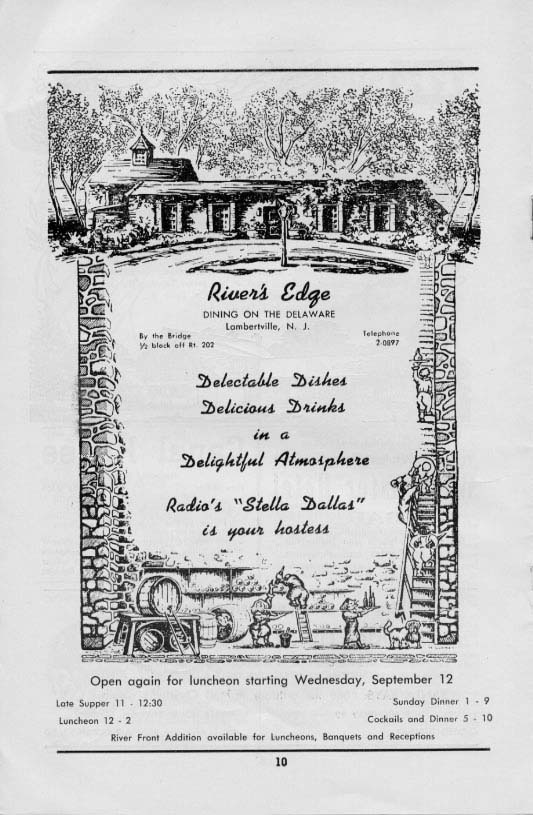 River's Edge
DINING ON THE DELAWARE
Lambertville, N. J.
By the Bridge
½ block off Rt. 202
Telephone
2-0897
Delectable Dishes
Delicious Drinks
in a
Delightful Atmosphere
Radio's "Stella Dallas"
is your hostess
Open again for luncheon starting Wednesday, September 12
Late Supper 11 - 12:30
Sunday Dinner 1 - 9
Luncheon 12 - 2
Cockails and Dinner 5 - 10
River Front Addition available for Luncheons, Banquets and Receptions
10